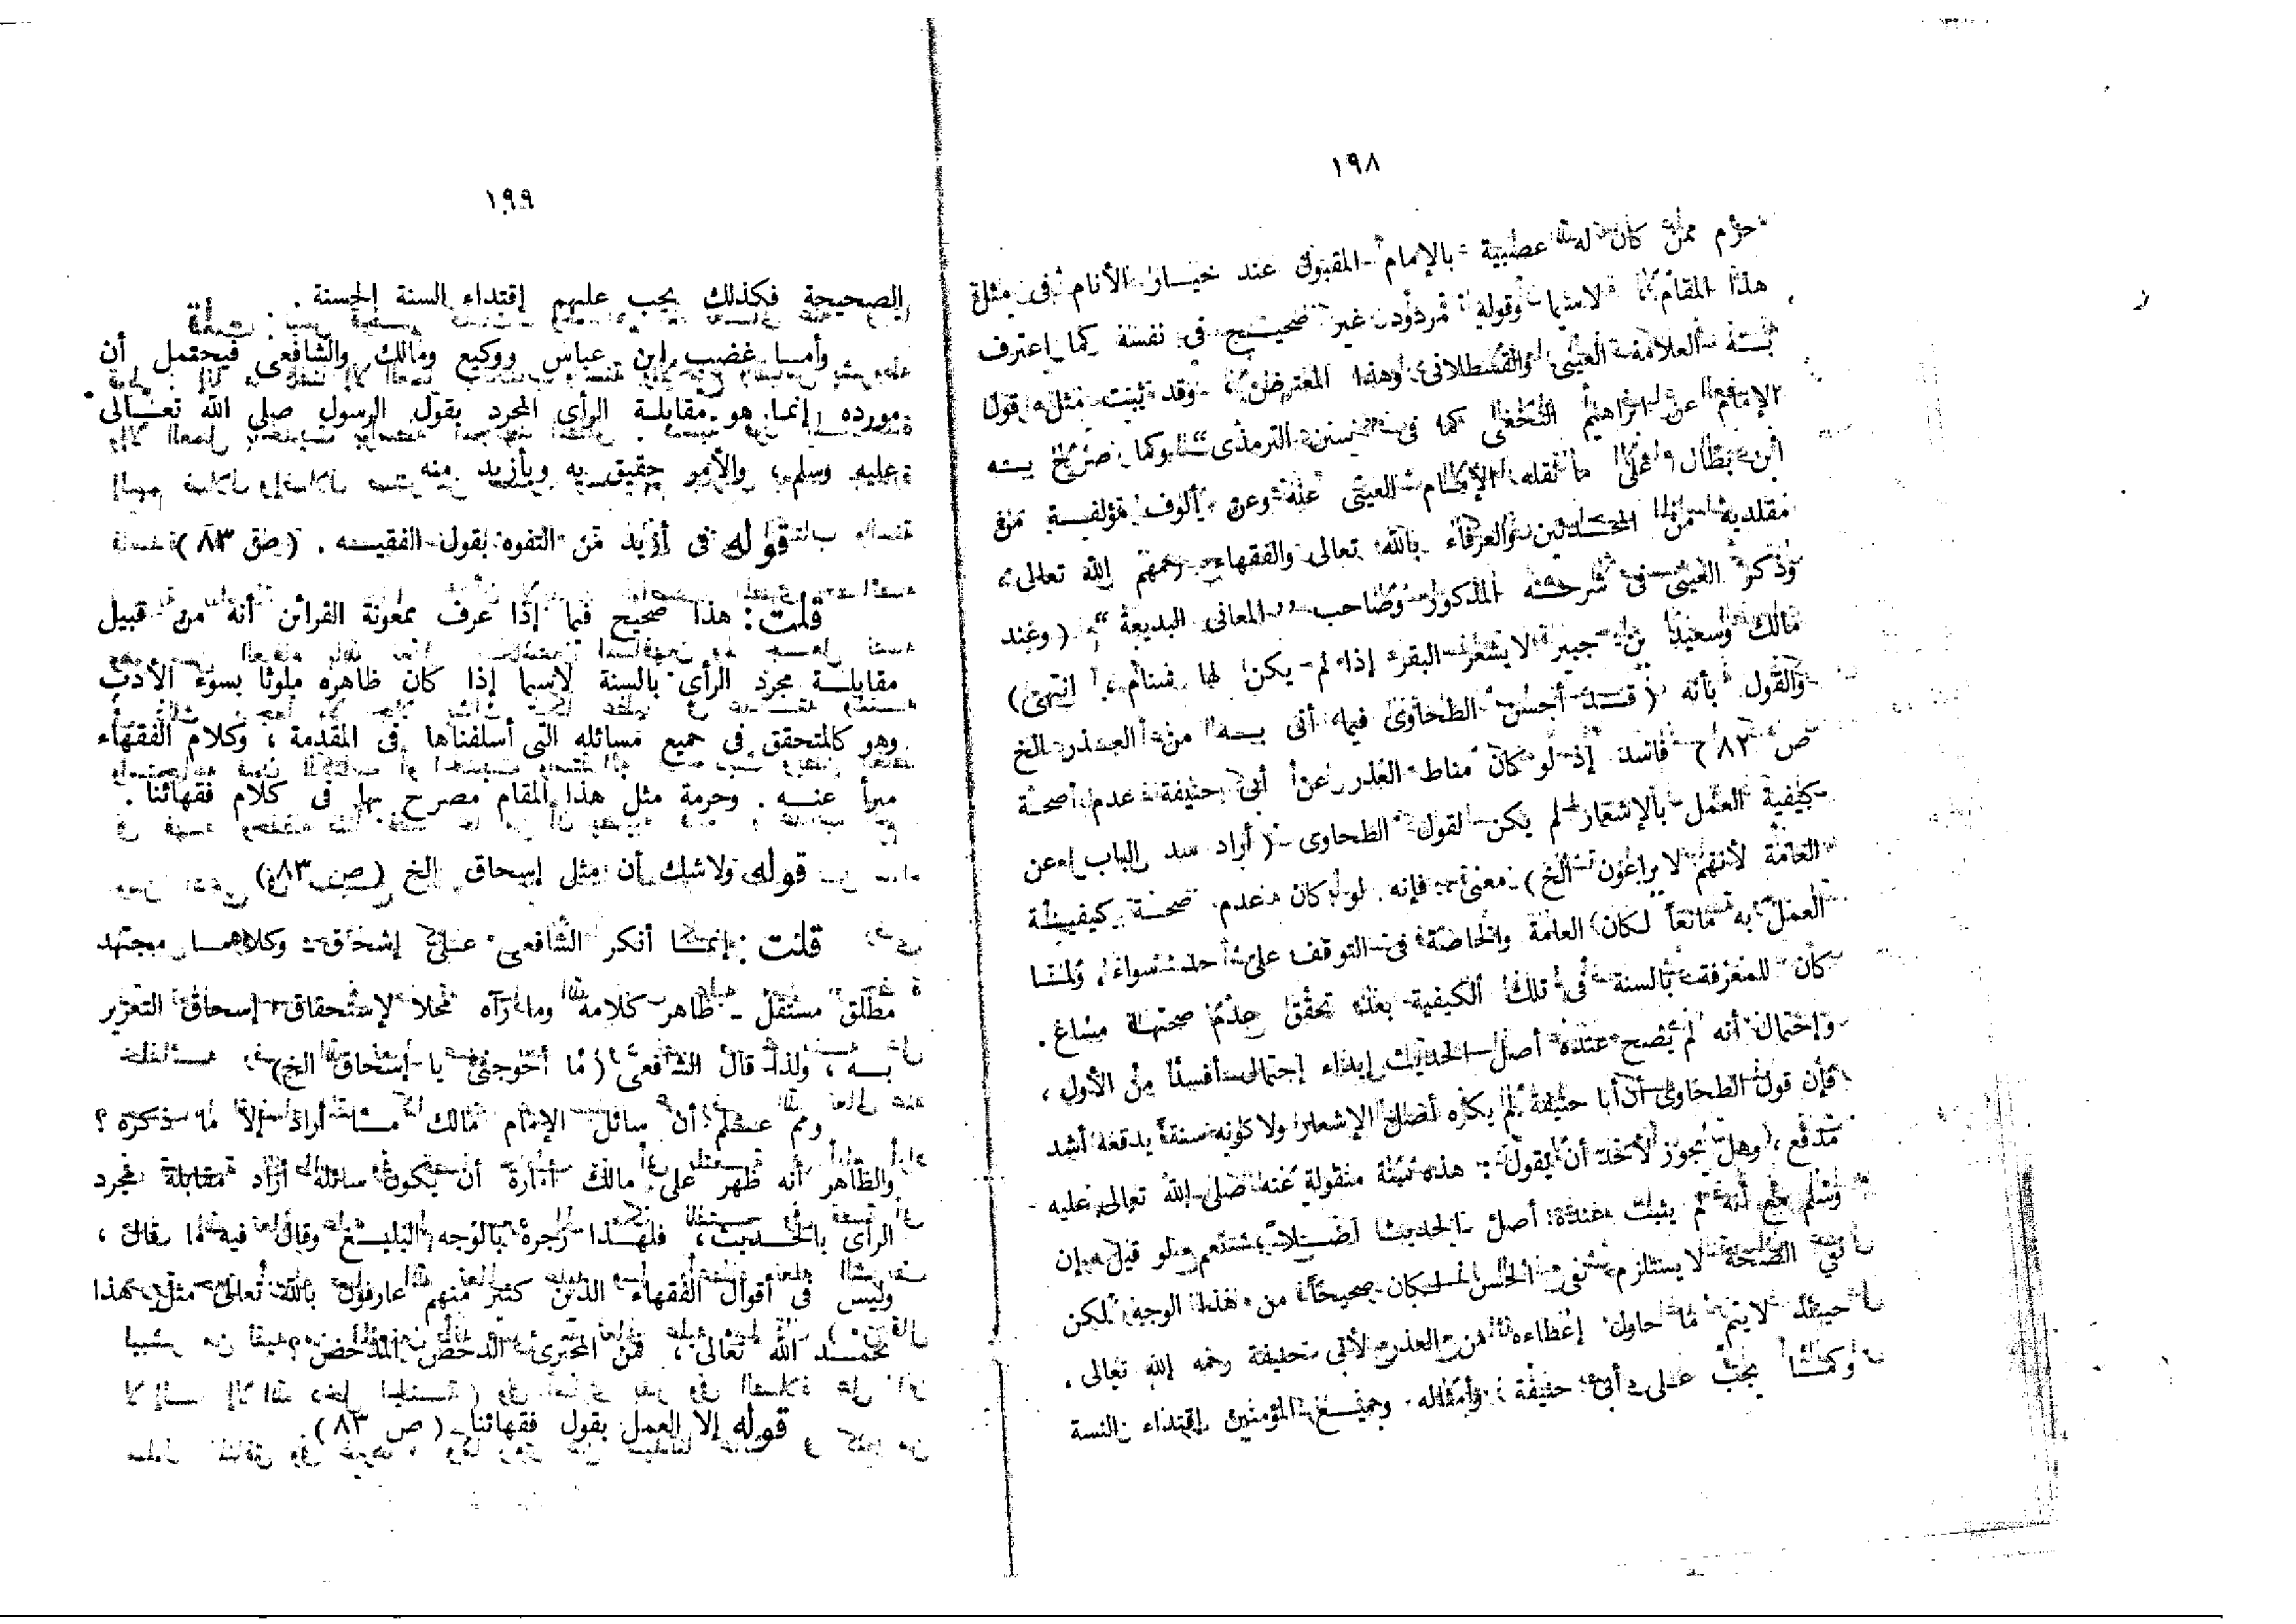 ١٩٨
حزم ممن كان له عصبية بالإمام المقبول عند خيار الأنام فى مثل
هذا المقام، لاسيما وقوله مردود غير صحيح فى نفسه كما اعترف
به العلامة العينى والقسطلانى وهذا المعترض، وقد ثبت مثل قول
الإمام عن ابراهيم النخعى كما فى "سنن الترمذى" وكما صرح به
ابن بطال على ما نقله الإمام العينى عنه وعن ألوف مؤلفة من
مقلديه من المحدثين والعرفاء بالله تعالى والفقهاء رحمهم الله تعالى،
وذكر العينى فى شرحه المذكور وصاحب "المعانى البديعة" (وعند
مالك وسعيد بن جبير لا يشعر البقر إذا لم يكن لها سنام، انتهى)
والقول بأنه (قد أحسن الطحاوى فيما أتى به من العذر الخ
ص ٨٢) فاسد إذ لو كان مناط العذر عن أبى حنيفة عدم صحة
كيفية العمل بالإشعار لم يكن لقول الطحاوى (أراد سد الباب عن
العامة لأنهم لا يراعون الخ) معنى، فإنه لو كان عدم صحة كيفية
العمل به مانعاً لكان العامة والخاصة فى التوقف على حد سواء، ولما
كان للمعرفة بالسنة فى تلك الكيفية بعد تحقق عدم صحتها مساغ.
وإحتمال أنه لم يصح عنده أصل الحديث إبداء إحتمال أفسد من الأول،
فإن قول الطحاوى أن أبا حنيفة لم يكره أصل الإشعار ولا كونه سنة يدفعه أشد
مدفع، وهل يجوز لأحد أن يقول: هذه سنة منقولة عنه صلى الله تعالى عليه
وسلم مع أنه لم يثبت عنده أصل الحديث أصلاً، نعم لو قيل إن
نفى الصحة لا يستلزم نفى الحسن لكان صحيحاً من هذا الوجه لكن
حينئذ لا يتم ما حاول إعطاءه من العذر لأبى حنيفة رحمه الله تعالى.
وكما يجب على أبى حنيفة وأمثاله وجميع المؤمنين إقتداء السنة
١٩٩
الصحيحة فكذلك يجب عليهم إقتداء السنة الحسنة.
قلت:
وأما غضب ابن عباس ووكيع ومالك والشافعى فيحتمل أن
مورده إنما هو مقابلة الرأى المجرد بقول الرسول صلى الله تعالى
عليه وسلم، والأمر حقيق به وبأزيد منه
قوله فى أزيد من التفوه بقول الفقيه. (ص ٨٣)
قلت: هذا صحيح فيما إذا عرف بمعونة القرائن أنه من قبيل
مقابلة مجرد الرأى بالسنة لاسيما إذا كان ظاهره ملوثا بسوء الأدب
وهو كالمتحقق فى جميع مسائله التى أسلفناها فى المقدمة، وكلام الفقهاء
مبرأ عنه. وحرمة مثل هذا المقام مصرح بها فى كلام فقهائنا.
قوله ولاشك أن مثل إسحاق الخ (ص ٨٣)
قلت: إنما أنكر الشافعى على إسحاق - وكلاهما مجتهد
مطلق مستقل - ظاهر كلامه وما رآه محلا لإستحقاق إسحاق التعزير
به، ولذا قال الشافعى (ما أحوجنى يا إسحاق الخ)
ومم علم أن سائل الإمام مالك ما أراد إلا ما ذكره؟
والظاهر أنه ظهر على مالك أمارة أن يكون سائله أراد مقابلة مجرد
الرأى بالحديث، فلهذا زجره بالوجه البليغ وقال فيه ما قال،
وليس فى أقوال الفقهاء الذين كثير منهم عارفون بالله تعالى مثل هذا
بحمد الله تعالى، فمن المجترئ الدحض المدحض؟
قوله إلا العمل بقول فقهائنا (ص ٨٣)